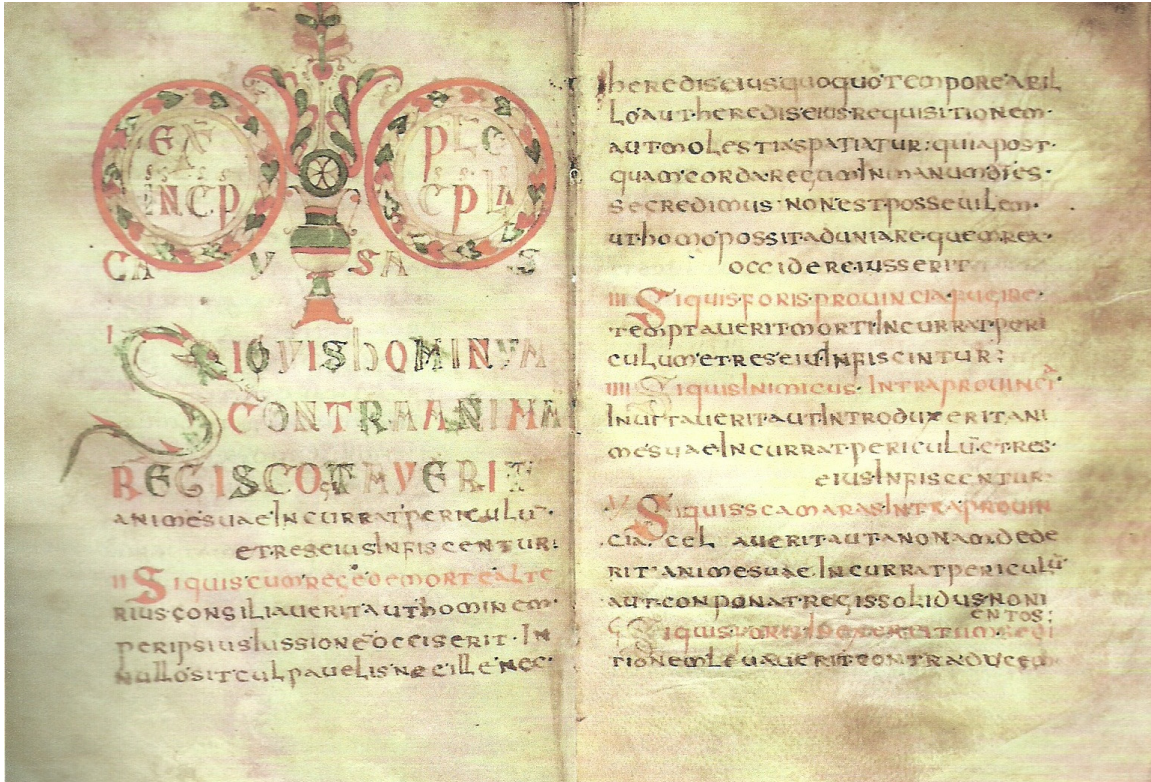 INCP
CAVSAS
I SIQVIS hOMINVM
CONTRA ANIMA
REGIS COTAVERIT
ANIMESUAE INCURRAT PERICULU·
ET RES EIUS INFISCENTUR:
II Siquis cum rege de morte alte
rius consiliaverit aut hominem·
per ipsius iussione occiserit· in
nullo sit culpavelis nec ille nec·
heredis eius quoquo tempore ab il
lo aut heredis eius requisitionem·
aut molestias patiatur: quia post·
quam corda regum in manum dei es·
se credimus· non est possevilem·
ut homo possit aduniare· quem rex·
occidere iusserit
III Siquis foris provincia fugire·
temptaverit morti incurrat peri
culum et res eius infiscintur:
IIII Siquis inimicus· intra provincia
invitaverit aut introduxerit ani
mesuae incurrat periculu· et res·
eius infiscentur·
V Siquis scamaras intra provin
cia· cel averit aut anonam dede
rit· animesuae incurrat periculu
aut· conponat regis solidus noni
entos:
Siquis
tionem levaverit contra ducem